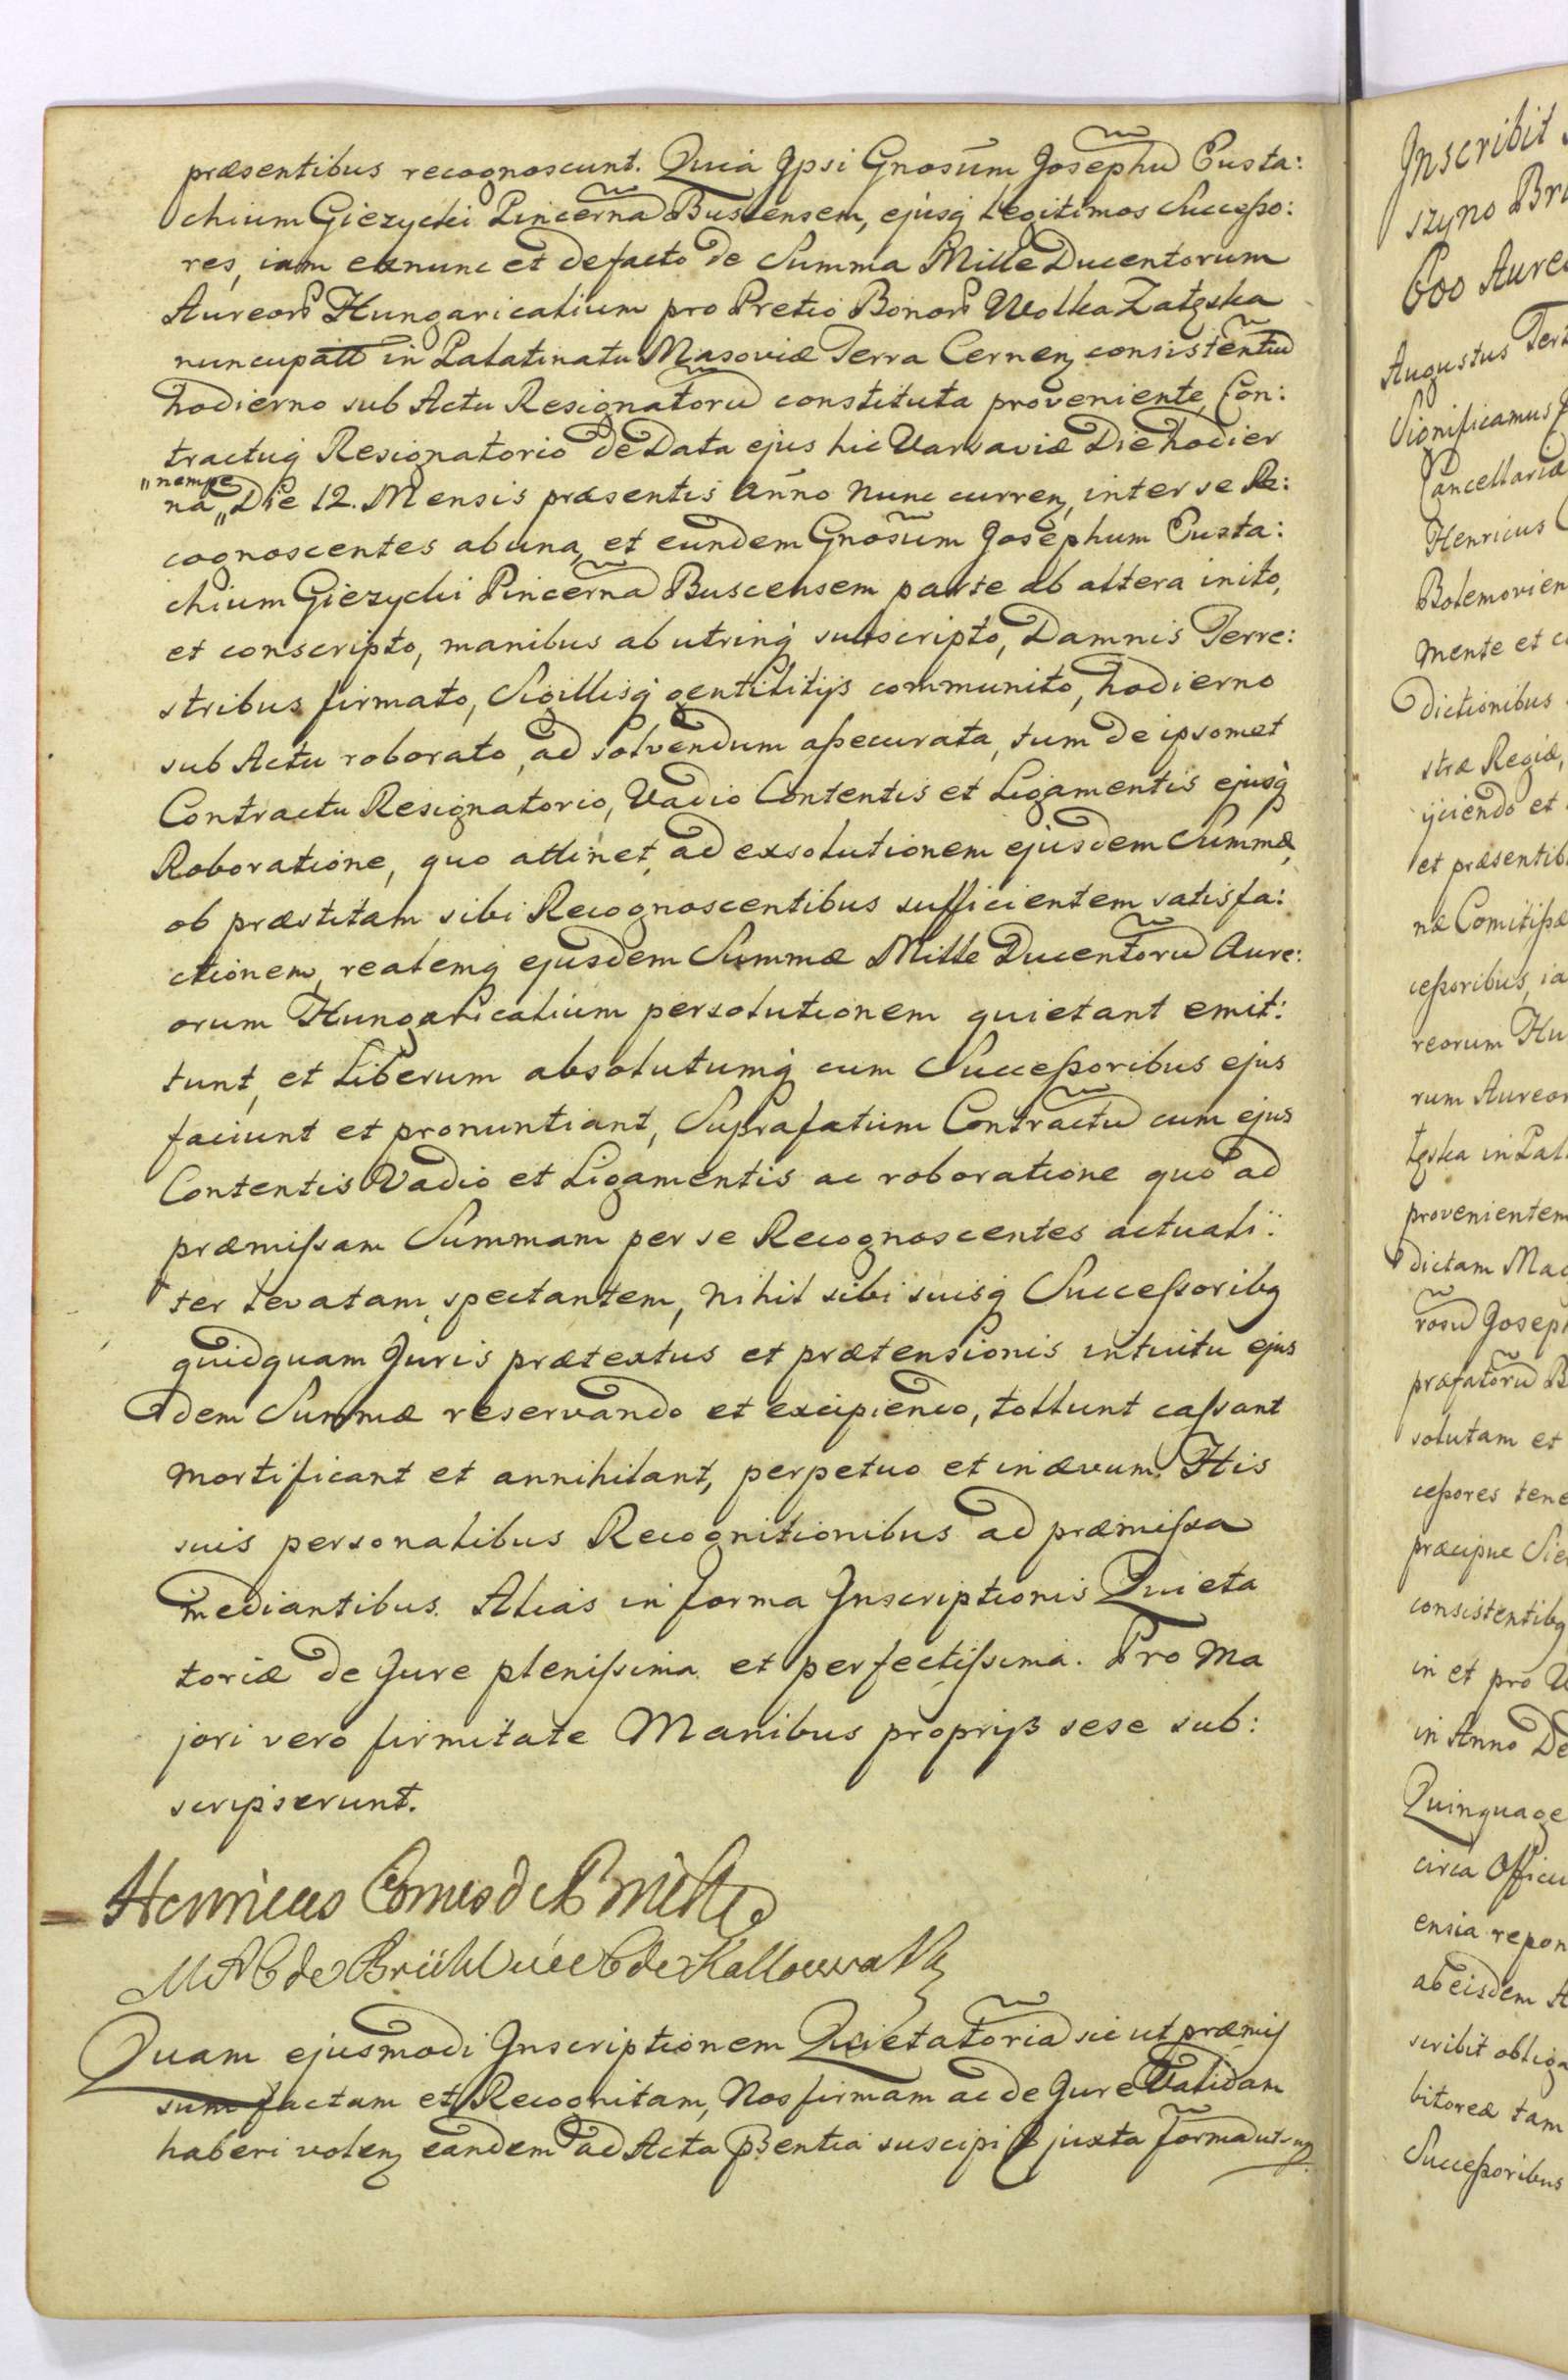 præsentibus recognoscunt. Quia Ipsi Gnosum Josephū Eusta:
chium Giezycki Pincernā Buscensem, ejusq Legitimos Successo:
res, iam exnunc et defacto de Summa Mille Ducentorum
Aureorū Hungaricalium pro Pretio Bonorū Wolka Zatzska
nuncupatt in Palatinatu Masoviæ Terra Cernen consistentiū
hodierno sub Actu Resignatoriū constituta proveniente, Con:
tractuq Resignatorio de Data ejus hic Varsaviæ Die hodier
na „nempe„ Die 12. Mensis præsentis Anno nunc curren, inter se Re:
cognoscentes ab una, et eundem Gnosum Josephum Eusta:
chium Giezycki Pincernā Buscensem parte ab altera inito,
et conscripto, manibus ab utrinq subscripto, Damnis Terre:
stribus firmato, Sigillisq gentilitijs communito, hodierno
sub Actu roborato, ad solvendum assecurata, tum de ipsomet
Contractu Resignatorio, Vadio Contentis et Ligamentis ejusq
Roboratione, quo attinet, ad exsolutionem ejusdem Summæ,
ob præstitam sibi Recognoscentibus sufficientem satisfa:
ctionem, realemq ejusdem Summæ Mille Ducentorū Aure:
orum Hungaricalium persolutionem quietant emit:
tunt, et Liberum absolutumq cum Successoribus ejus
faciunt et pronuntiant, Suprafatum Contractū cum ejus
Contentis Vadio et Ligamentis ac roboratione quo ad
præmissam Summam per se Recognoscentes actuali:
ter levatam, spectantem, nihil sibi suisq Successoribq
quidquam Juris prætextus et prætensionis intuitu ejus
dem Summæ reservando et excipiendo, tollunt cassant
mortificant et annihilant, perpetuo et in ævum. His
suis personalibus Recognitionibus ad præmissa
mediantibus. Alias in forma Inscriptionis Quieta
toriæ de Jure plenissima et perfectissima. Pro Ma
jori vero firmitate Manibus proprijs sese sub:
scripserunt.
Henricus Comes de Brühl
MAC de Brühl née C de Kollowrath
Quam ejusmodi Inscriptionem Quietatoriā sic ut præmis
sum factam et Recognitam, Nos firmam ac de Jure Validam
haberi volen eandem ad Acta pßentia suscipi juxta formā
Inscribit
szyno Br
600 Aure
Augustus Ter
Significamus
Cancellariæ
Henricus
Bolemovien
mente et
dictionibus
stræ Regiæ,
ijciendo et
et præsentib
næ Comitissæ
cessoribus, ia
reorum Hu
rum Aureor
tzska in Pal
provenientem
dictam Mac
rosū Joseph
præfatorū B
solutam et
cessores tene
præcipue Sie
consistentibq
in et pro
in Anno De
Quinquage
circa Officiu
ensia repon
ab eisdem A
scribit obliga
bitorea tam
Successoribus